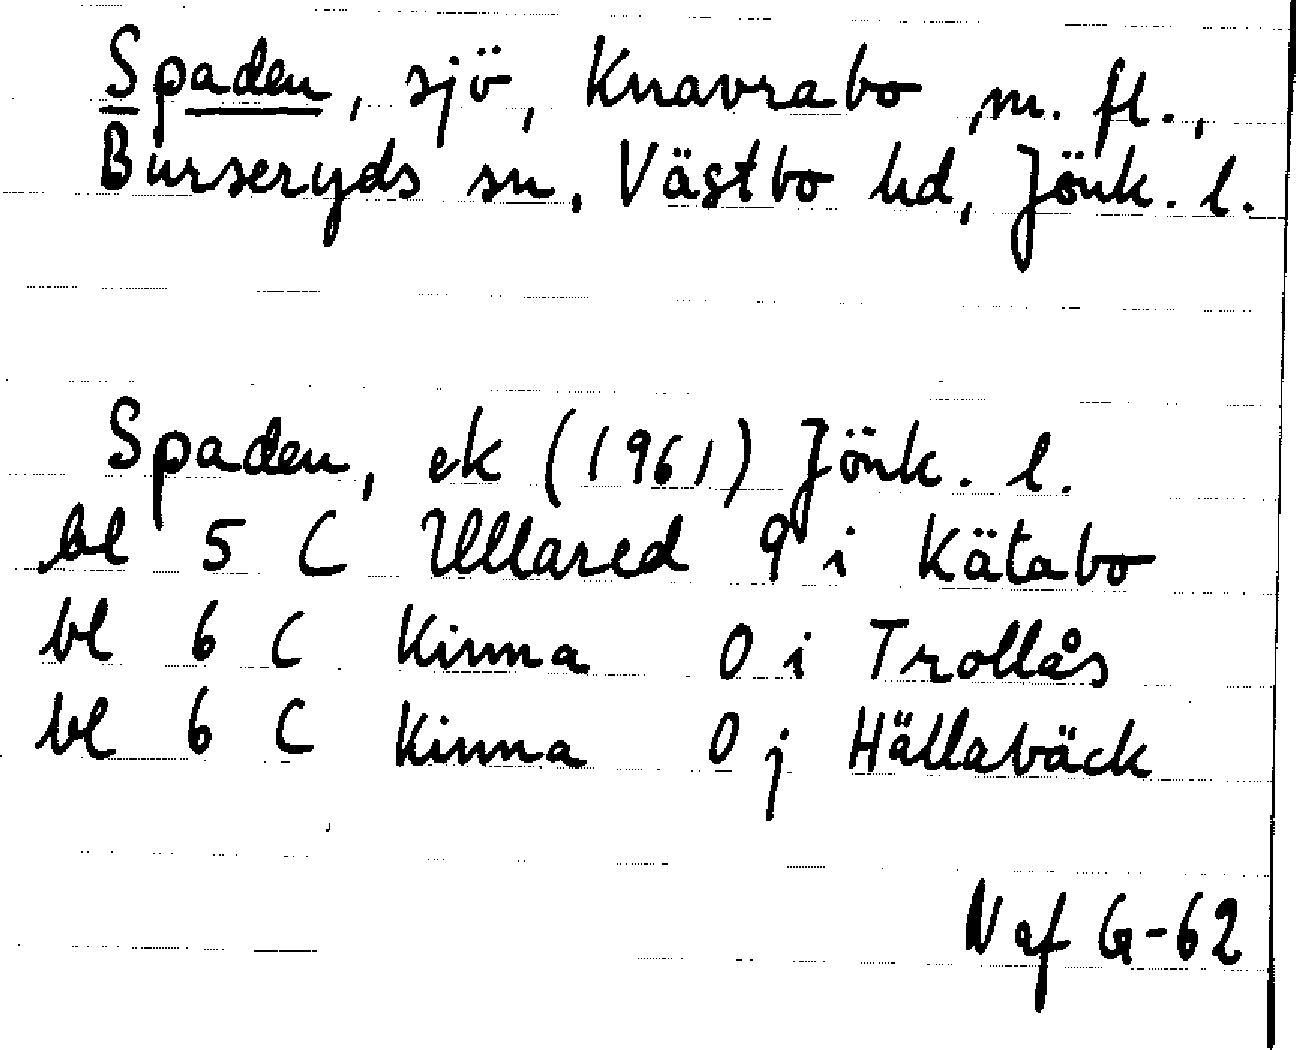 Spaden, sjö, Knavrabo m. fl.,
Burseryds sn, Västbo hd, Jönk. l.
Spaden, ek (1961) Jönk. l.
bl 5 C Ullared 9 i Kätabo
bl 6 C Kinna 0 i Trollås
bl 6 C Kinna 0 j Hällabäck
N af G-62